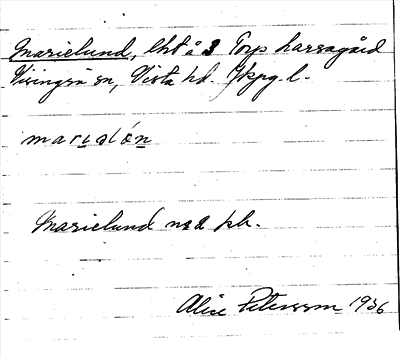 Marielund, lht å 3 Torp harsagård
Visingsö sn, Vista hd. Jkpg. l.
mariəlón
Marielund nr 2 pb.
Alice Petersson 1936